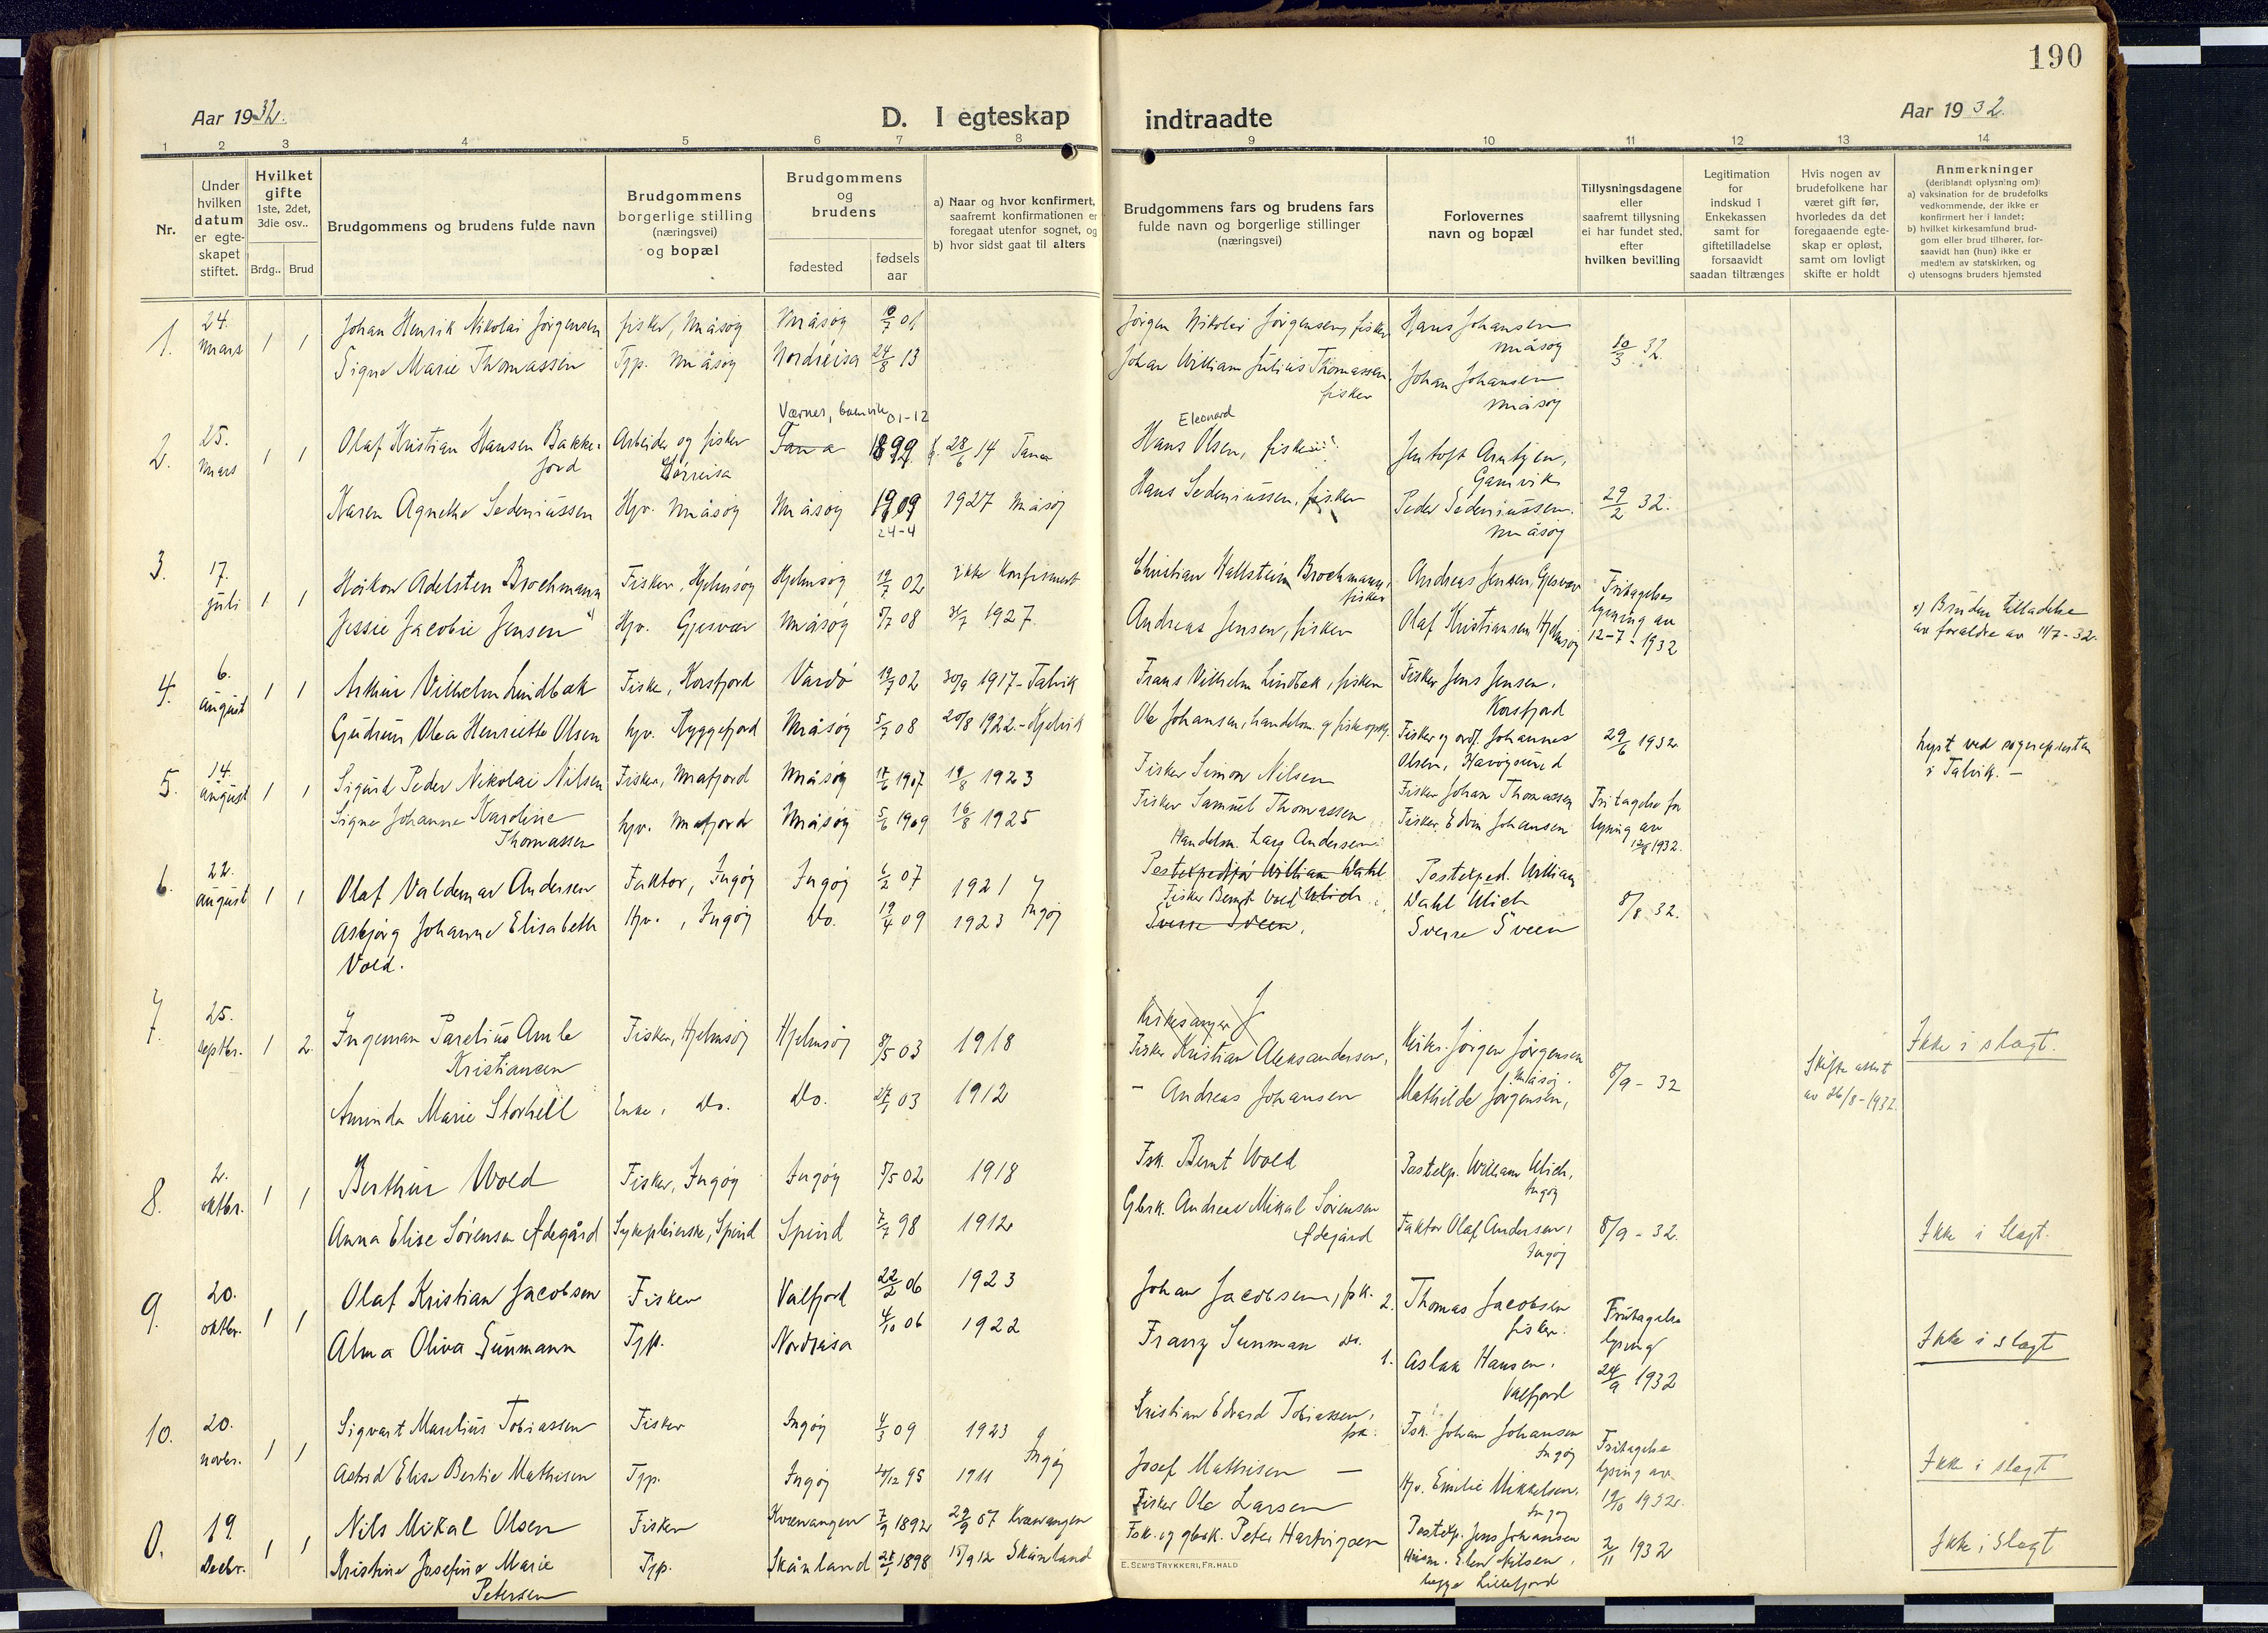 190
Aar 1932.
D. I egteskap
indtraadte
Aar 1932.
1 2 3 4 5 6 7 8 9 10 11 12 13 14
Nr.
Under hvilken datum er egteskapet stiftet.
Hvilket gifte
1ste, 2det, 3die osv..
Brdg.. Brud
Brudgommens og brudens fulde navn
Brudgommens borgerlige stilling (næringsvei) og bopæl
Brudgommens og brudens
fødested
fødsels aar
a) Naar og hvor konfirmert, saafremt konfirmationen er foregaat utenfor sognet, og
b) hvor sidst gaat til alters
Brudgommens fars og brudens fars fulde navn og borgerlige stillinger (næringsvei)
Forlovernes navn og bopæl
Tillysningsdagene eller saafremt tillysning ei har fundet sted, efter hvilken bevilling
Legitimation for indskud i Enkekassen samt for giftetilladelse forsaavidt saadan tiltrænges
Hvis nogen av brudefolkene har været gift før, hvorledes da det foregaaende egteskap er opløst, samt om lovligt skifte er holdt
Anmerkninger
(deriblandt oplysning om):
a) vaksination for de brudefolks vedkommende, der ikke er konfirmert her i landet;
b) hvilket kirkesamfund brudgom eller brud tilhører, forsaavidt han (hun) ikke er medlem av statskirken, og
c) utensogns bruders hjemsted
1. 24. Mars 1 1 Johan Henrik Nikolai Jørgensen fisker, Måsøy Måsøy 10/7 01 Jörgen Nikolai Jørgensen, fisker Hans Johansen Måsøy 10/3 32.
Signe Marie Thomassen Tjp. Måsøy Nordreisa 24/8 13 Johan William Julius Thomassen, fisker Johan Johansen Måsøy
2. 25. Mars 1 1 Olaf Kristian Hansen Bakkejord Arbeider og fisker Sørreisa Tana 1899 28/6 14 Tana Hans Eleonard Olsen, fisker Jentoft Arntzen, Gamvik 29/2 32.
01-12
Karen Agnethe Sedeniussen Hjv. Måsøy Måsøy 1909 24-4 1927 Måsøy Hans Sedeniussen, fisker Peder Sedeniussen. Måsøy
3. 17. juli 1 1 Håkon Adelsten Brochmann Fisker, Hjelmsøy Hjelmsøy 19/7 02 ikke konfirmert Christian Hallstein Brochmann, fisker Andreas Jensen, Gjesvær Fritagelse lysning av 12-7-1932
Jessie Jacobie Jensen a) Hjv. Gjesvær Måsøy 5/7 08 31/7 1927 Andreas Jensen, fisker Olaf Kristiansen Hjelmsøy a) Bruden tilladelse av foraldre av 11/7-32.
4. 6. august 1 1 Arthur Vilhelm Lindbak Fisker, Korsfjord Vardø 19/7 02 30/9 1917 - Talvik Frans Vilhelm Lindbak, fisker Fisker Jens Jensen. Korsfjord
Gudrun Olea Henriette Olsen hjv. Ryggefjord Måsøy 5/7 08 20/8 1922 - Kjelvik Ole Johansen, handelsm. og fiskeopkj. Fisker og ordf. Johannes Olsen, Havøysund 29/6 1932 Lyst ved sognepresten i Talvik. -
5. 14. august 1 1 Sigurd Peder Nikolai Nilsen Fisker, Måfjord Måsøy 17/6 1907 19/8 1923 Fisker Simon Nilsen Fisker Johan Thomassen Fritagelse for lysning av 12/8 1932.
Signe Johanne Karoline Thomassen hjv. Måfjord Måsøy 5/6 1909 16/8 1925 Fisker Samuel Thomassen Fisker, Edvin Johansen
6. 22. august 1 1 Olaf Valdemar Andersen Faktor, Ingøy Ingøy 6/2 07 1921 Ingøy Handelsm. Lars Andersen Postekspeditør William Dahl Postexped. William Dahl Ulich 8/8 32.
Asbjørg Johanne Elisabeth Vold. Hjv., Ingøy Do. 19/4 09 1923 Fisker Bernt Vold Ulich Sverre Sveen, Sverre Sveen
7. 25. septbr. 1 2. Ingeman Parelius Amle Kristiansen Fisker, Hjelmsøy Hjelmsøy 8/5 03 1918 Kirkesanger J Fisker Kristian Aleksandersen, Kirks. Jørgen Jørgensen Måsøy. 8/9 - 32 Skifte attest av 26/8-1932. Ikke i slagt.
Aminda Marie Storhell Enke, Do. Do. 27/1 03 1912 - Andreas Johansen Mathilde Jørgensen,
8. 2. oktbr. 1 1 Berthur Wold Fisker, Ingøy Ingøy 5/5 02 1918 Fsk. Bernt Wold Postexp. William Ulich, Ingøy 8/9 - 32. Ikke i slagt.
Anna Elise Sørensen Ødegård Sykepleierske, Spind Spind 7/7 98 1912 Gbrk. Andreas Mikal Sørensen Ødegård Faktor Olaf Andersen, Ingøy
9. 20. oktbr. 1 1 Olaf Kristian Jacobsen Fisker Valfjord 22/2 06 1923 Johan Jacobsen, fsk. 2. Thomas Jacobsen fisker. Fritagelse lysning 24/9 1932 Ikke i slagt
Alma Oliva Sunmann Tjp. Nordreisa 4/10 06 1922 Franz Sunman do. 1. Aslak Hansen. Valfjord
10. 20. novbr. 1 1 Sigvart Marelius Tobiassen Fisker Ingøy 4/3 09 1923 Ingøy Kristian Edvard Tobiassen, fsk. Fsk. Johan Johansen Ingøy Fritagelse lysning av 19/10 1932. Ikke i slagt
Astrid Elise Bertie Mathisen Tjp. Ingøy 20/12 95 1911 Josef Mathisen - Hjv. Emelie Mikkelsen. Ingøy
0. 19. Decbr. 1 1 Nils Mikal Olsen Fisker Kvænangen 7/9 1892 29/9 07 Kvænangen Fisker Ole Larsen Postexp. Jens Johansen 2/11 1932 Ikke i slagt
Kristine Josefine Marie Petersen Tjp. Skånland 28/1 1898 15/9 12 Skånland Fsk. og gbrk. Peter Hartvigsen Elen Nilsen, begge Lillefjord
E. SEM'S TRYKKERI, FR.HALD